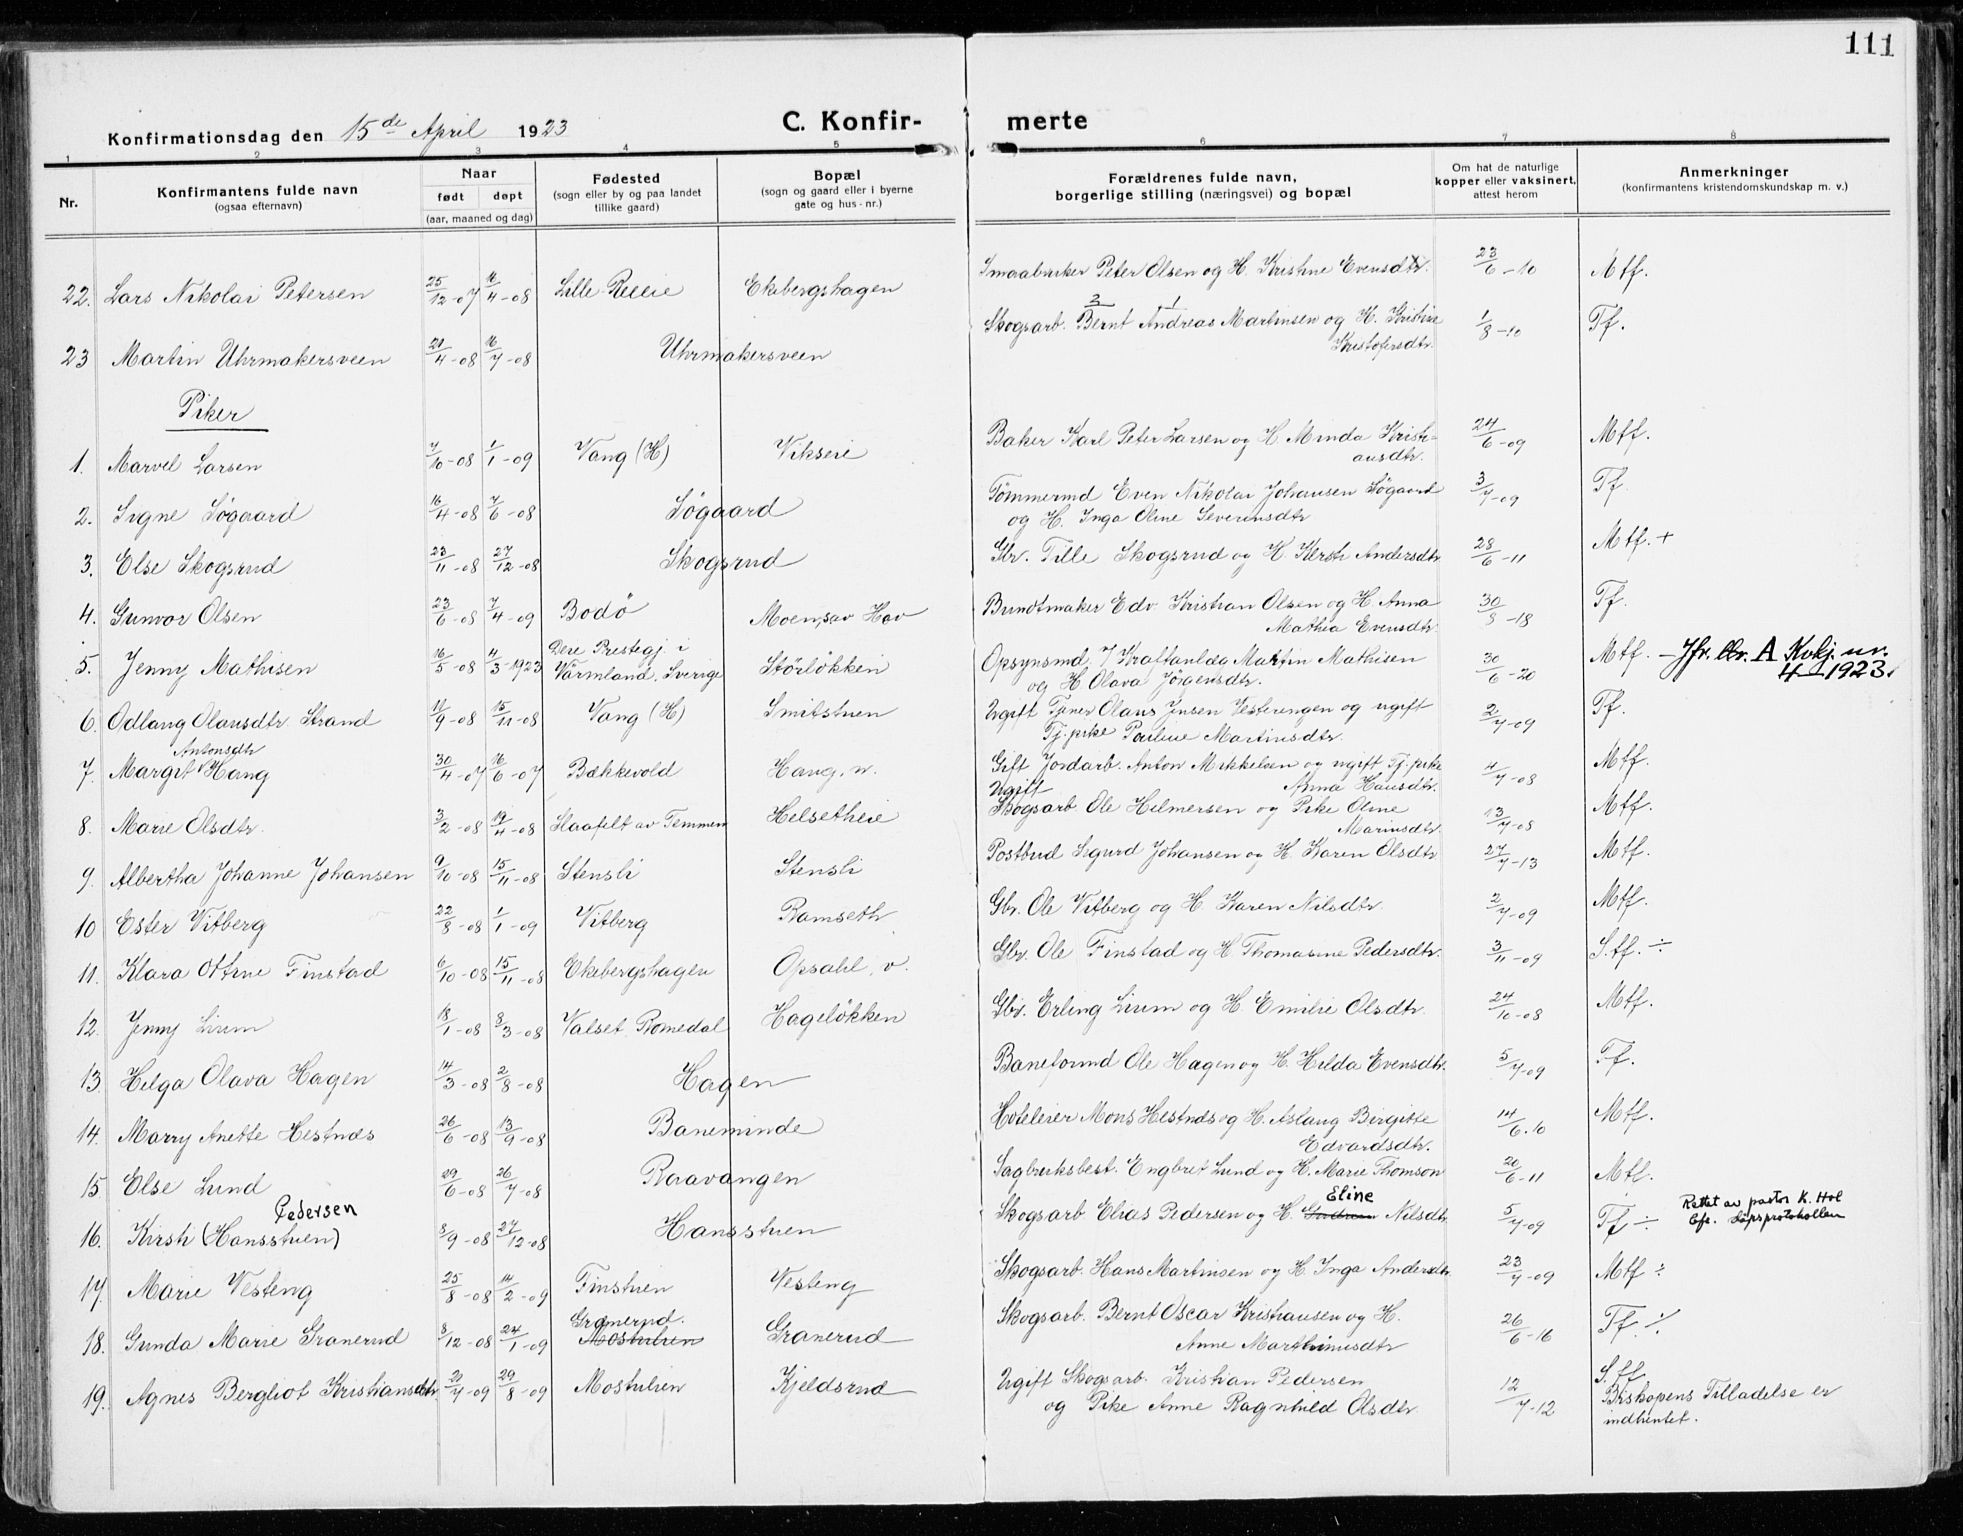 111
Konfirmationsdag den 15de April 1923
C. Konfir- merte
1 2 3 4 5 6 7 8
Nr.
Konfirmantens fulde navn
(ogsaa efternavn)
Naar
født døpt
(aar, maaned og dag)
Fødested
(sogn eller by og paa landet
tillike gaard)
Bopæl
(sogn og gaard eller i byerne
gate og hus-nr.)
Forældrenes fulde navn,
borgerlige stilling (næringsvei) og bopæl
Om hat de naturlige
kopper eller vaksinert,
attest herom
Anmerkninger
(konfirmantens kristendomskundskap m. v.)
22. Lars Nikolai Petersen 25/12-07 16/4-08 Lille Ekebergshagen Smaabruker Peter Olsen og H. Kristine Evensdtr. 23/6-10 Mtf.
23 Martin Uhrmakersveen 21/4-08 16/7-08 Uhrmakersveen Skogsarb. 2 Bernt 1 Andreas Martinsen og H. Kristine
Kristofersdtr. 1/8-10 Tf.
Piker
1. Marvel Larsen 7/10-08 1/1-09 Vang (H) Vikseie Baker Karl Peter Larsen og H. Minda Kristi-
ansdtr. 24/6-09 Mtf.
2. Signe Søgaard 16/4-08 7/6-08 Søgaard Tømmermd Even Nikolai Johansen Søgaard
og H. Inga Oline Severinsdtr 3/7-09 Tf.
3. Else Skogsrud 23/11-08 27/12-08 Skogsrud Gbr. Tille Skogsrud og H. Kirsti Andersdtr 28/6-11 Mtf. +
4. Gunvor Olsen 23/6-08 7/4-09 Bodø Moen, sav Hov Buntmaker Edv. Kristian Olsen og H. Anna
Mathea Evensdtr. 30/8-18 Tf.
5. Jenny Mathisen 16/5-08 4/3-1923 Dere Prestegj. i
Värmland. Sverige Störløkken Opsynsmd. v/ Kraftanlæg Martin Mathisen
og H Olava Jørgensdtr. 30/6-20 Mtf. - Jfr. lbr. A Kvkj. nr.
4 - 1923.
6. Odlaug Olausdtr Strand 11/9-08 15/11-08 Vang (H) Smitstuen Ugift Tjener Olaus Jensen Vesterengen og ugift
Tj. pike Pauline Martinsdtr. 2/7-09 Tf.
Antonsdtr
7. Margit Haug 30/4-07 16/6-07 Bækkevold Haug. n. Gift Jordarb. Anton Mikkelsen og ugift Tj. pike
Anna Hansdtr. 4/7-08 Mtf.
8. Marie Olsdtr. 3/2-08 19/4-08 Slaafelt av Temmen Helsetheie Ugift
Skogsarb Ole Hilmersen og Pike Oline
Marinsdtr. 13/7-08 Mtf.
9. Albertha Johanne Johansen 9/10-08 15/11-08 Stensli Stensli Postbud Sigurd Johansen og H. Karen Olsdtr 27/7-13 Mtf.
10 Ester Vitberg 22/8-08 1/1-09 Vitberg Ramseth Gbr. Ole Vitberg og H. Karen Nilsdtr. 2/7-09 Mtf.
11. Klara Ottine Finstad 6/10-08 15/11-08 Ekebergshagen Opsahl, v. Gbr. Ole Finstad og H Thomasine Pedersdtr. 3/11-09 S.tf. ÷
12. Jenny Lium 18/1-08 8/3-08 Valset Romedal Hageløkken Gbr. Erling Lium og H. Emilie Olsdtr. 24/10-08 Mtf.
13. Helga Olava Hagen 14/3-08 2/8-08 Hagen Baneformd Ole Hagen og H. Hilda Evensdtr. 5/7-09 Tf.
14. Marry Anette Hestnæs 26/6-08 13/9-08 Baneminde Hoteleier Mons Hestnæs og H. Aslaug Birgitte
Edvardsdtr. 14/6.10 Mtf.
15 Else Lund 29/6-08 26/7-08 Raavangen Sagbruksbest. Engbret Lund og H. Marie Thomson 20/6-11 Mtf.
Pedersen
16. Kirsti (Hansstuen) 8/9-08 27/12-08 Hansstuen Skogsarb. Elias Pedersen og H. Gudrun Eline Nilsdtr 5/7-09 Tf ÷ Rettet av pastor K. Hol
Efr. døpsprotokollen
17. Marie Vesteng 25/8-08 14/2-09 Finstuen Vesteng Skogsarb. Hans Martinsen og H. Inga Andersdtr 23/7-09 Mtf ÷
18. Gunda Marie Granerud 8/12-08 24/1-09 Granerud.
Mostulien Granerud Skogsarb. Bernt Oscar Kristiansen og H.
Anne Marthinusdtr 26/6-16 Tf. ÷
19. Agnes Bergliot Kristiansdtr 20/7-09 29/8-09 Mostulien Kjeldsrud Ugift Skogsarb. Kristian Pedersen
og Pike Anne Ragnhild Olsdtr. 12/7-12 S.tf
Biskopens Tilladelse er
indhentet.